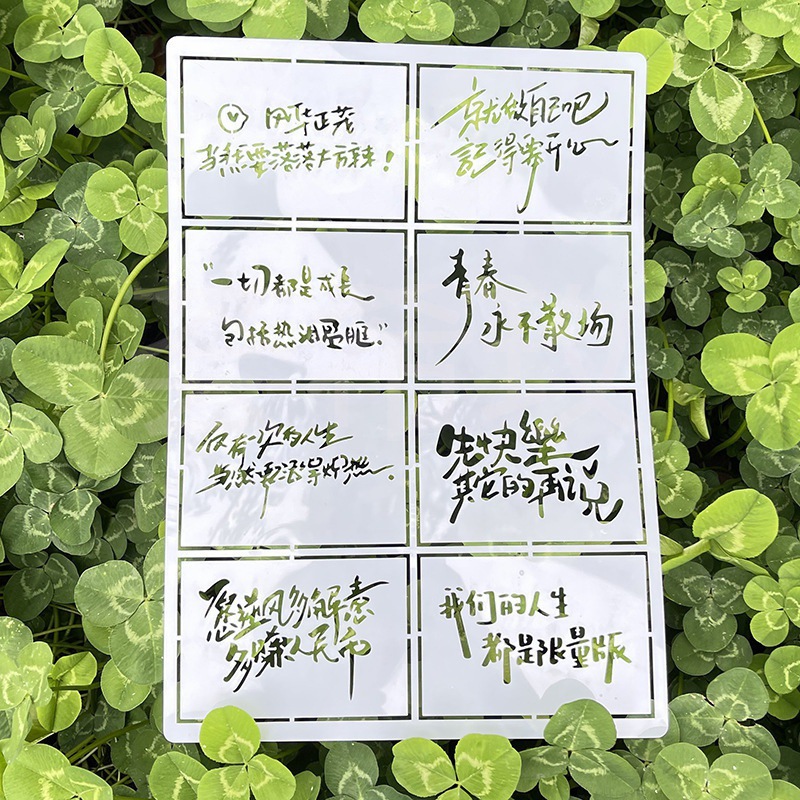 风华正茂
当然要落落大方辣!
就做自己吧
記得要开心
“一切都是成長
包括热泪盈眶”
青春
永不散场
仅有一次的人生
当然要活得炽热.
先快樂
其它的再说
愿风多解意
多赚人民币
我们的人生
都是限量版